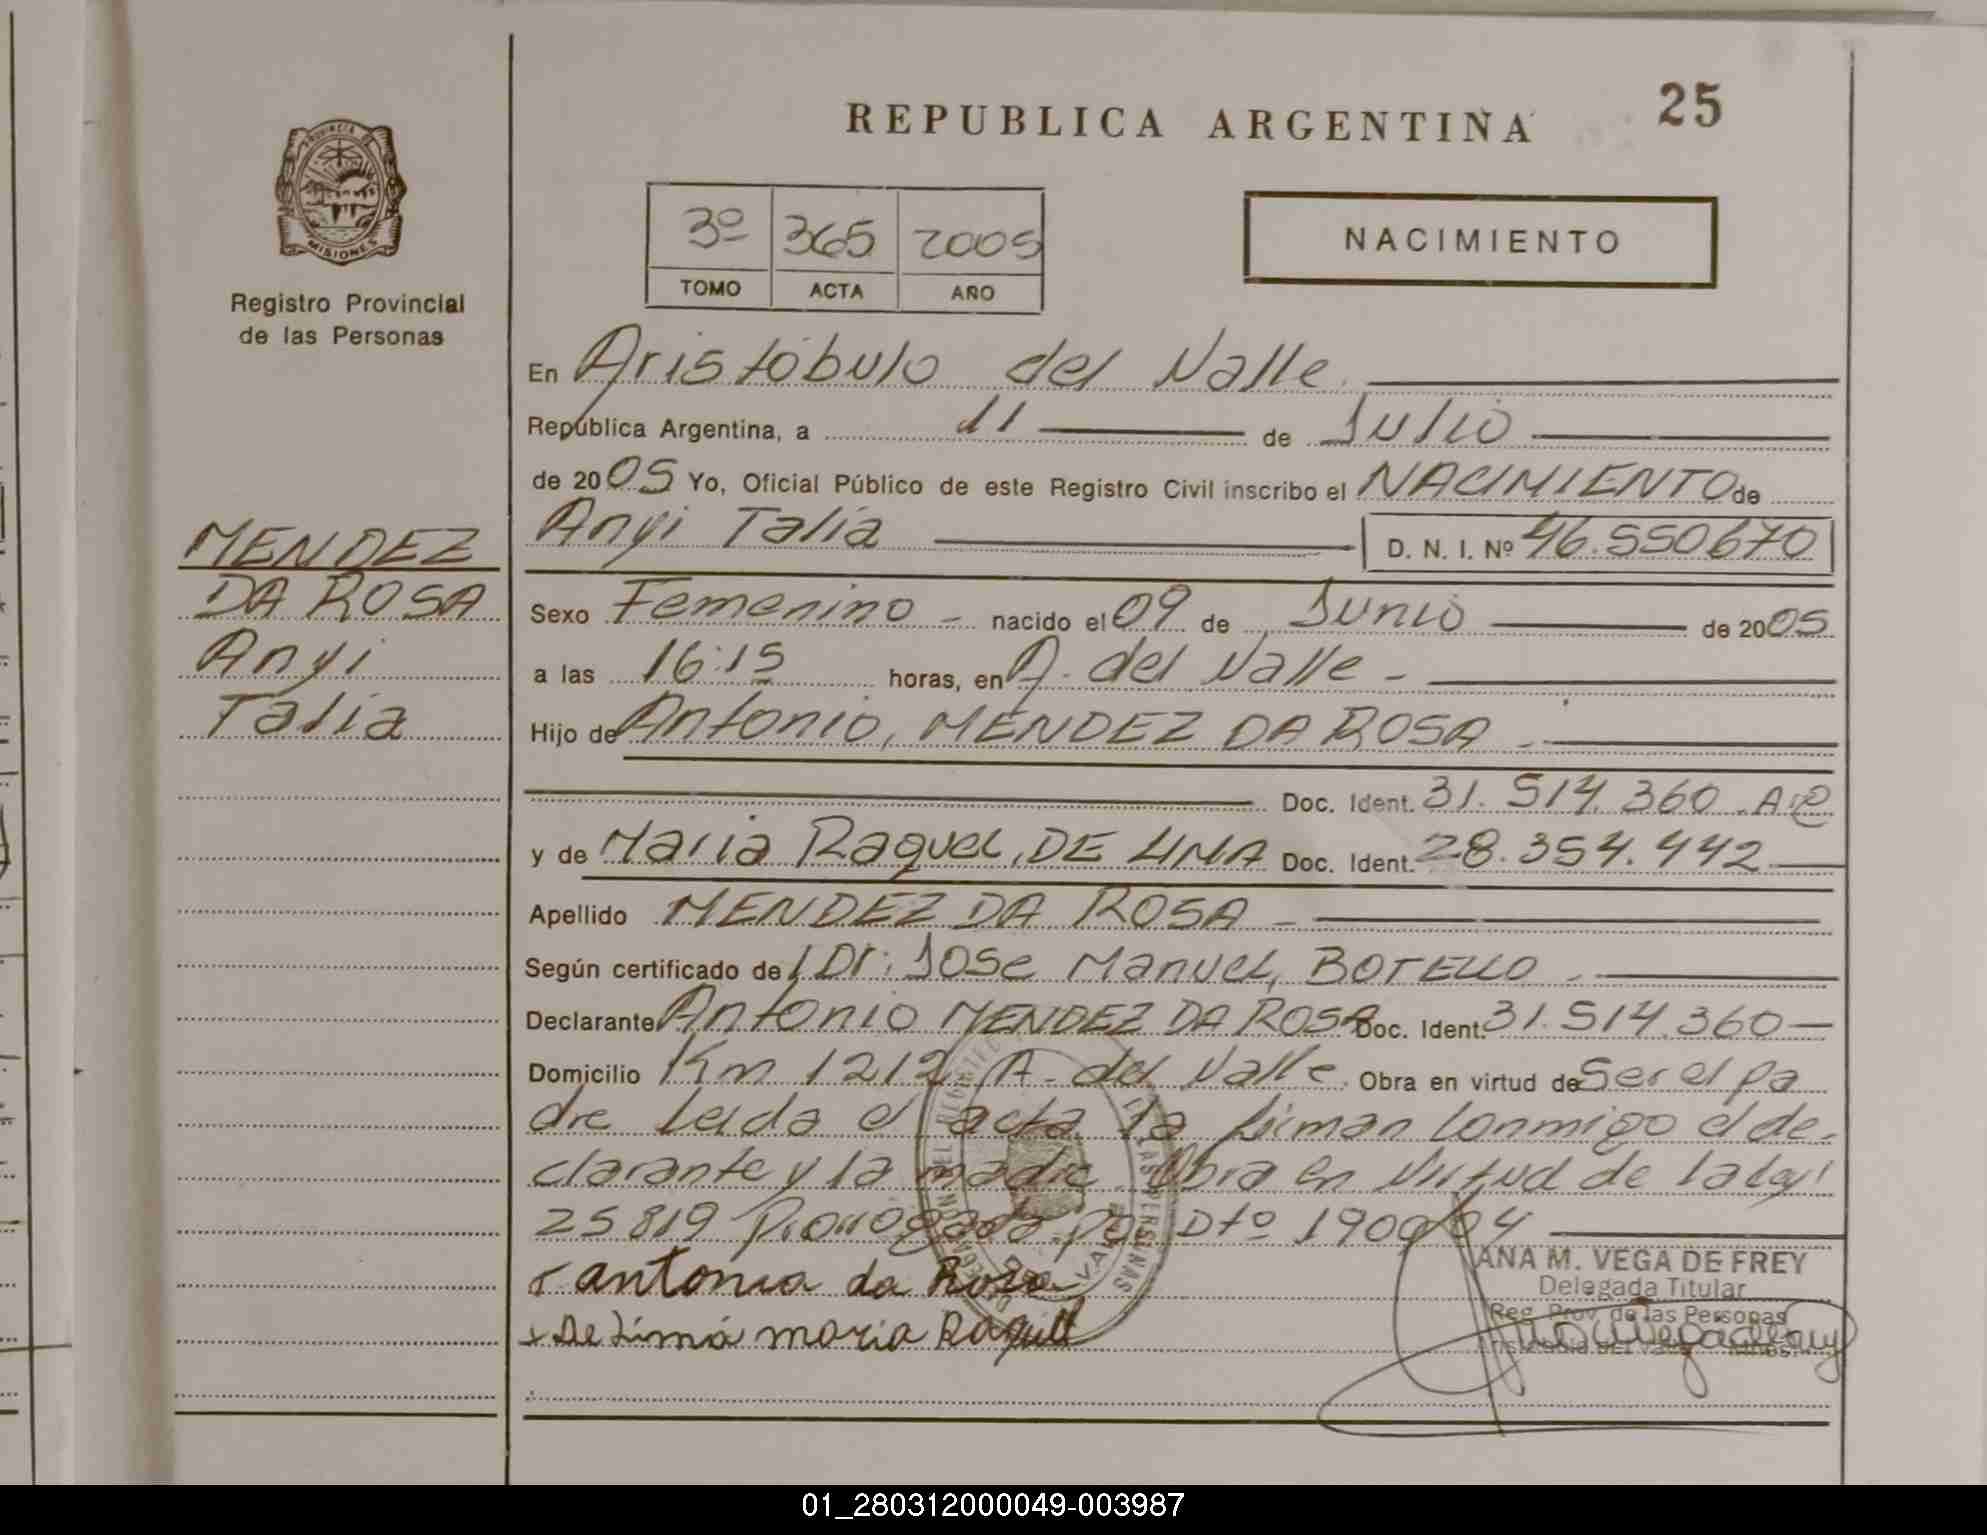 REPUBLICA ARGENTINA
25
PROVINCIA DE
MISIONES
Registro Provincial
de las Personas
3º 365 2005
TOMO ACTA AÑO
NACIMIENTO
En Aristóbulo del Valle
República Argentina, a 11 de Julio
de 2005 Yo, Oficial Público de este Registro Civil inscribo el NACIMIENTO de
Anyi Talía D. N. I. Nº 46.550670
MENDEZ
DA ROSA
Anyi
Talía
Sexo Femenino - nacido el 09 de Junio de 2005
a las 16:15 horas, en A. del Valle -
Hijo de Antonio, MENDEZ DA ROSA -
Doc. Ident. 31.514.360
y de Maria Raquel, DE LIMA Doc. Ident. 28.354.442
Apellido MENDEZ DA ROSA -
Según certificado de Dr: Jose Manuel, BOTELLO
Declarante Antonio MENDEZ DA ROSA Doc. Ident. 31.514.360
Domicilio Km 1212 A. del Valle. Obra en virtud de Ser el pa
dre Leida el acta la firman Conmigo el de-
clarante y la madre. Obra en Virtud de la ley
25819 Prorrogado por Dto 1900/04
antonio da Rosa
De Lima maria Raquel
ANA M. VEGA DE FREY
Delegada Titular
Reg. Prov. de las Personas
01_280312000049-003987